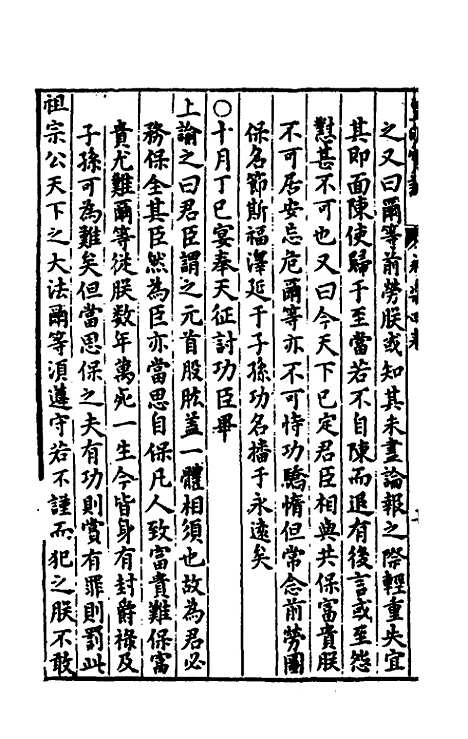 之又曰爾等前勞朕或知其未盡論報之際輕重失宜
其即面陳使歸于至當若不自陳而退有後言或至怨
懟甚不可也又曰今天下已定君臣相與共保富貴朕
不可居安忘危爾等亦不可恃功驕惰但常念前勞圖
保名節斯福澤延于子孫功名播于永遠矣
○十月丁巳宴奉天征討功臣畢
上諭之曰君臣謂之元首股肱蓋一體相須也故為君必
務保全其臣然為臣亦當思自保凡人致富貴難保富
貴尤難爾等從朕数年萬死一生今皆身有封爵祿及
子孫可為難矣但當思保之夫有功則賞有罪則罰此
祖宗公天下之大法爾等須遵守若不謹而犯之朕不敢